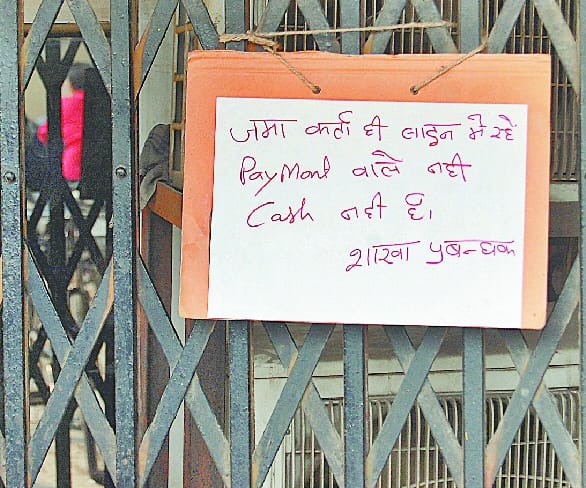 जमा कर्ता ही लाइन में रहें
PayMent वाले नही
Cash नही है।
शाखा प्रबन्धक